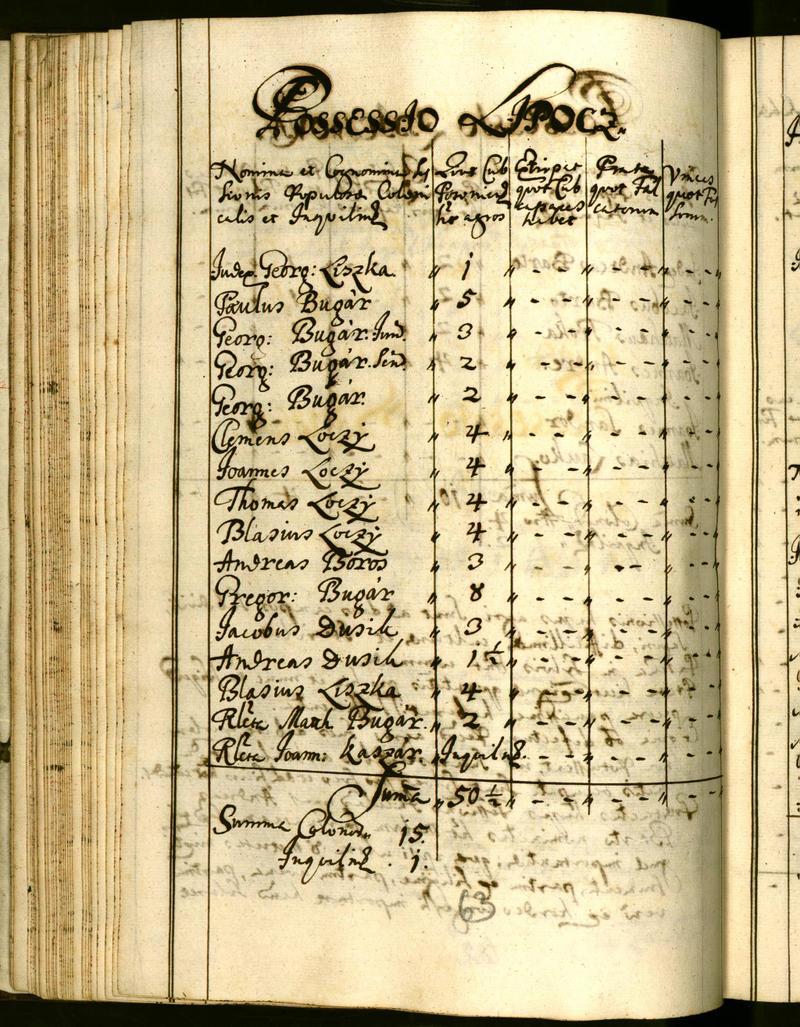 Possessio Lipocz.
Nomina et Cognomina
sionis Populorū Coloni
calis et Inquilinȩ
Quot Cub
Posoniens
hēt agros
Extirpat
quot Cub
capaces
habet
Prata
quot Fal
catorum
Vineas
quot Fos
sorum.
Judex. Georg: Liszka. " 1 " - - " - - " - - "
Paulus Bugár " 5 " - - " - - " - - "
Georg: Bugár. Jun. " 3 " - - " - - " - - "
Georg: Bugár. Sen. " 2 " - - " - - " - - "
Georg: Bugár. " 2 " - - " - - " - - "
Clemens Loczy " 4 " - - " - - " - - "
Joannes Loczy " 4 " - - " - - " - - "
Thomas Loczy " 4 " - - " - - " - - "
Blasius Loczy " 4 " - - " - - " - - "
Andreas Boros " 3 " - - " - - " - - "
Gregor: Bugár " 8 " - - " - - " - - "
Jacobus Dusik " 3 " - - " - - " - - "
Andreas Dusik " 1 ½ " - - " - - " - - "
Blasius Liszka " 4 " - - " - - " - - "
Rlcta Math Bugár. " 2 " - - " - - " - - "
Rlcta Joann: Kaszár. Inquilinȩ. - - " - - " - - "
Suma " 50 ½ " - - " - - " - - "
Summa Colonor. 15.
Inquilinȩ . 1.
63